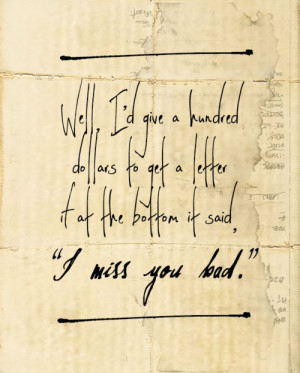 Well, I'd give a hundred
dollars to get a letter
if at the bottom it said,
"I miss you bad."